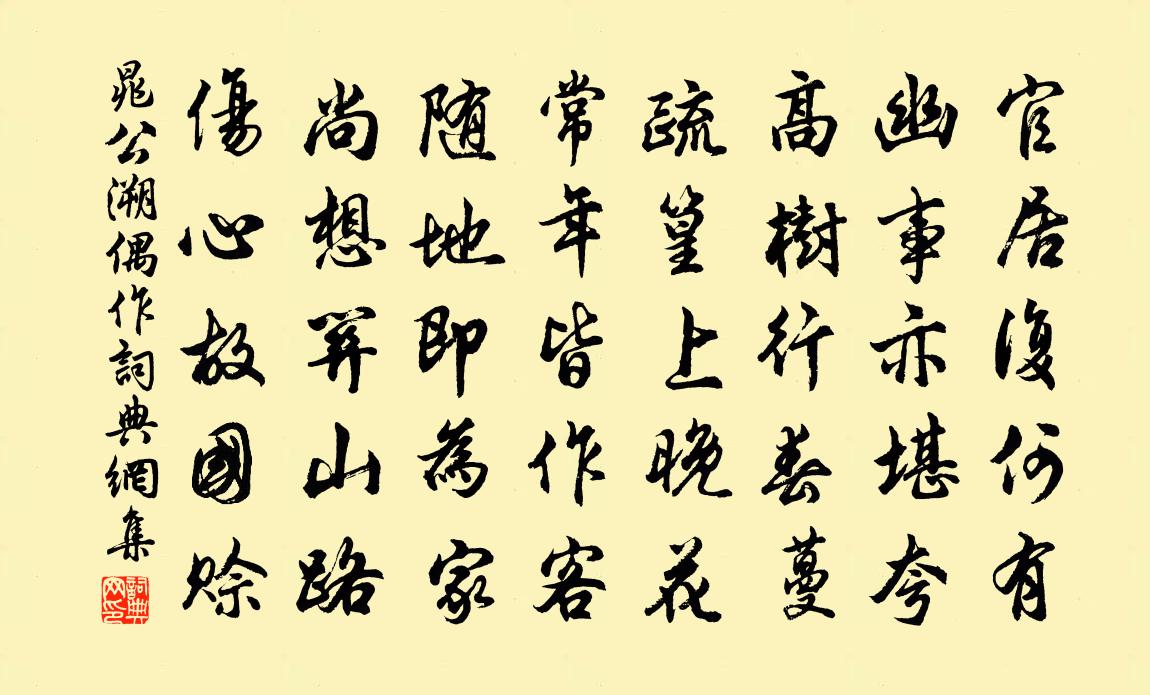 官居復何有
幽事亦堪夸
高樹行春蔓
疏篁上晚花
常年皆作客
随地即為家
尚想关山路
傷心故國賒
晁公溯偶作詞典網集
詞典网印